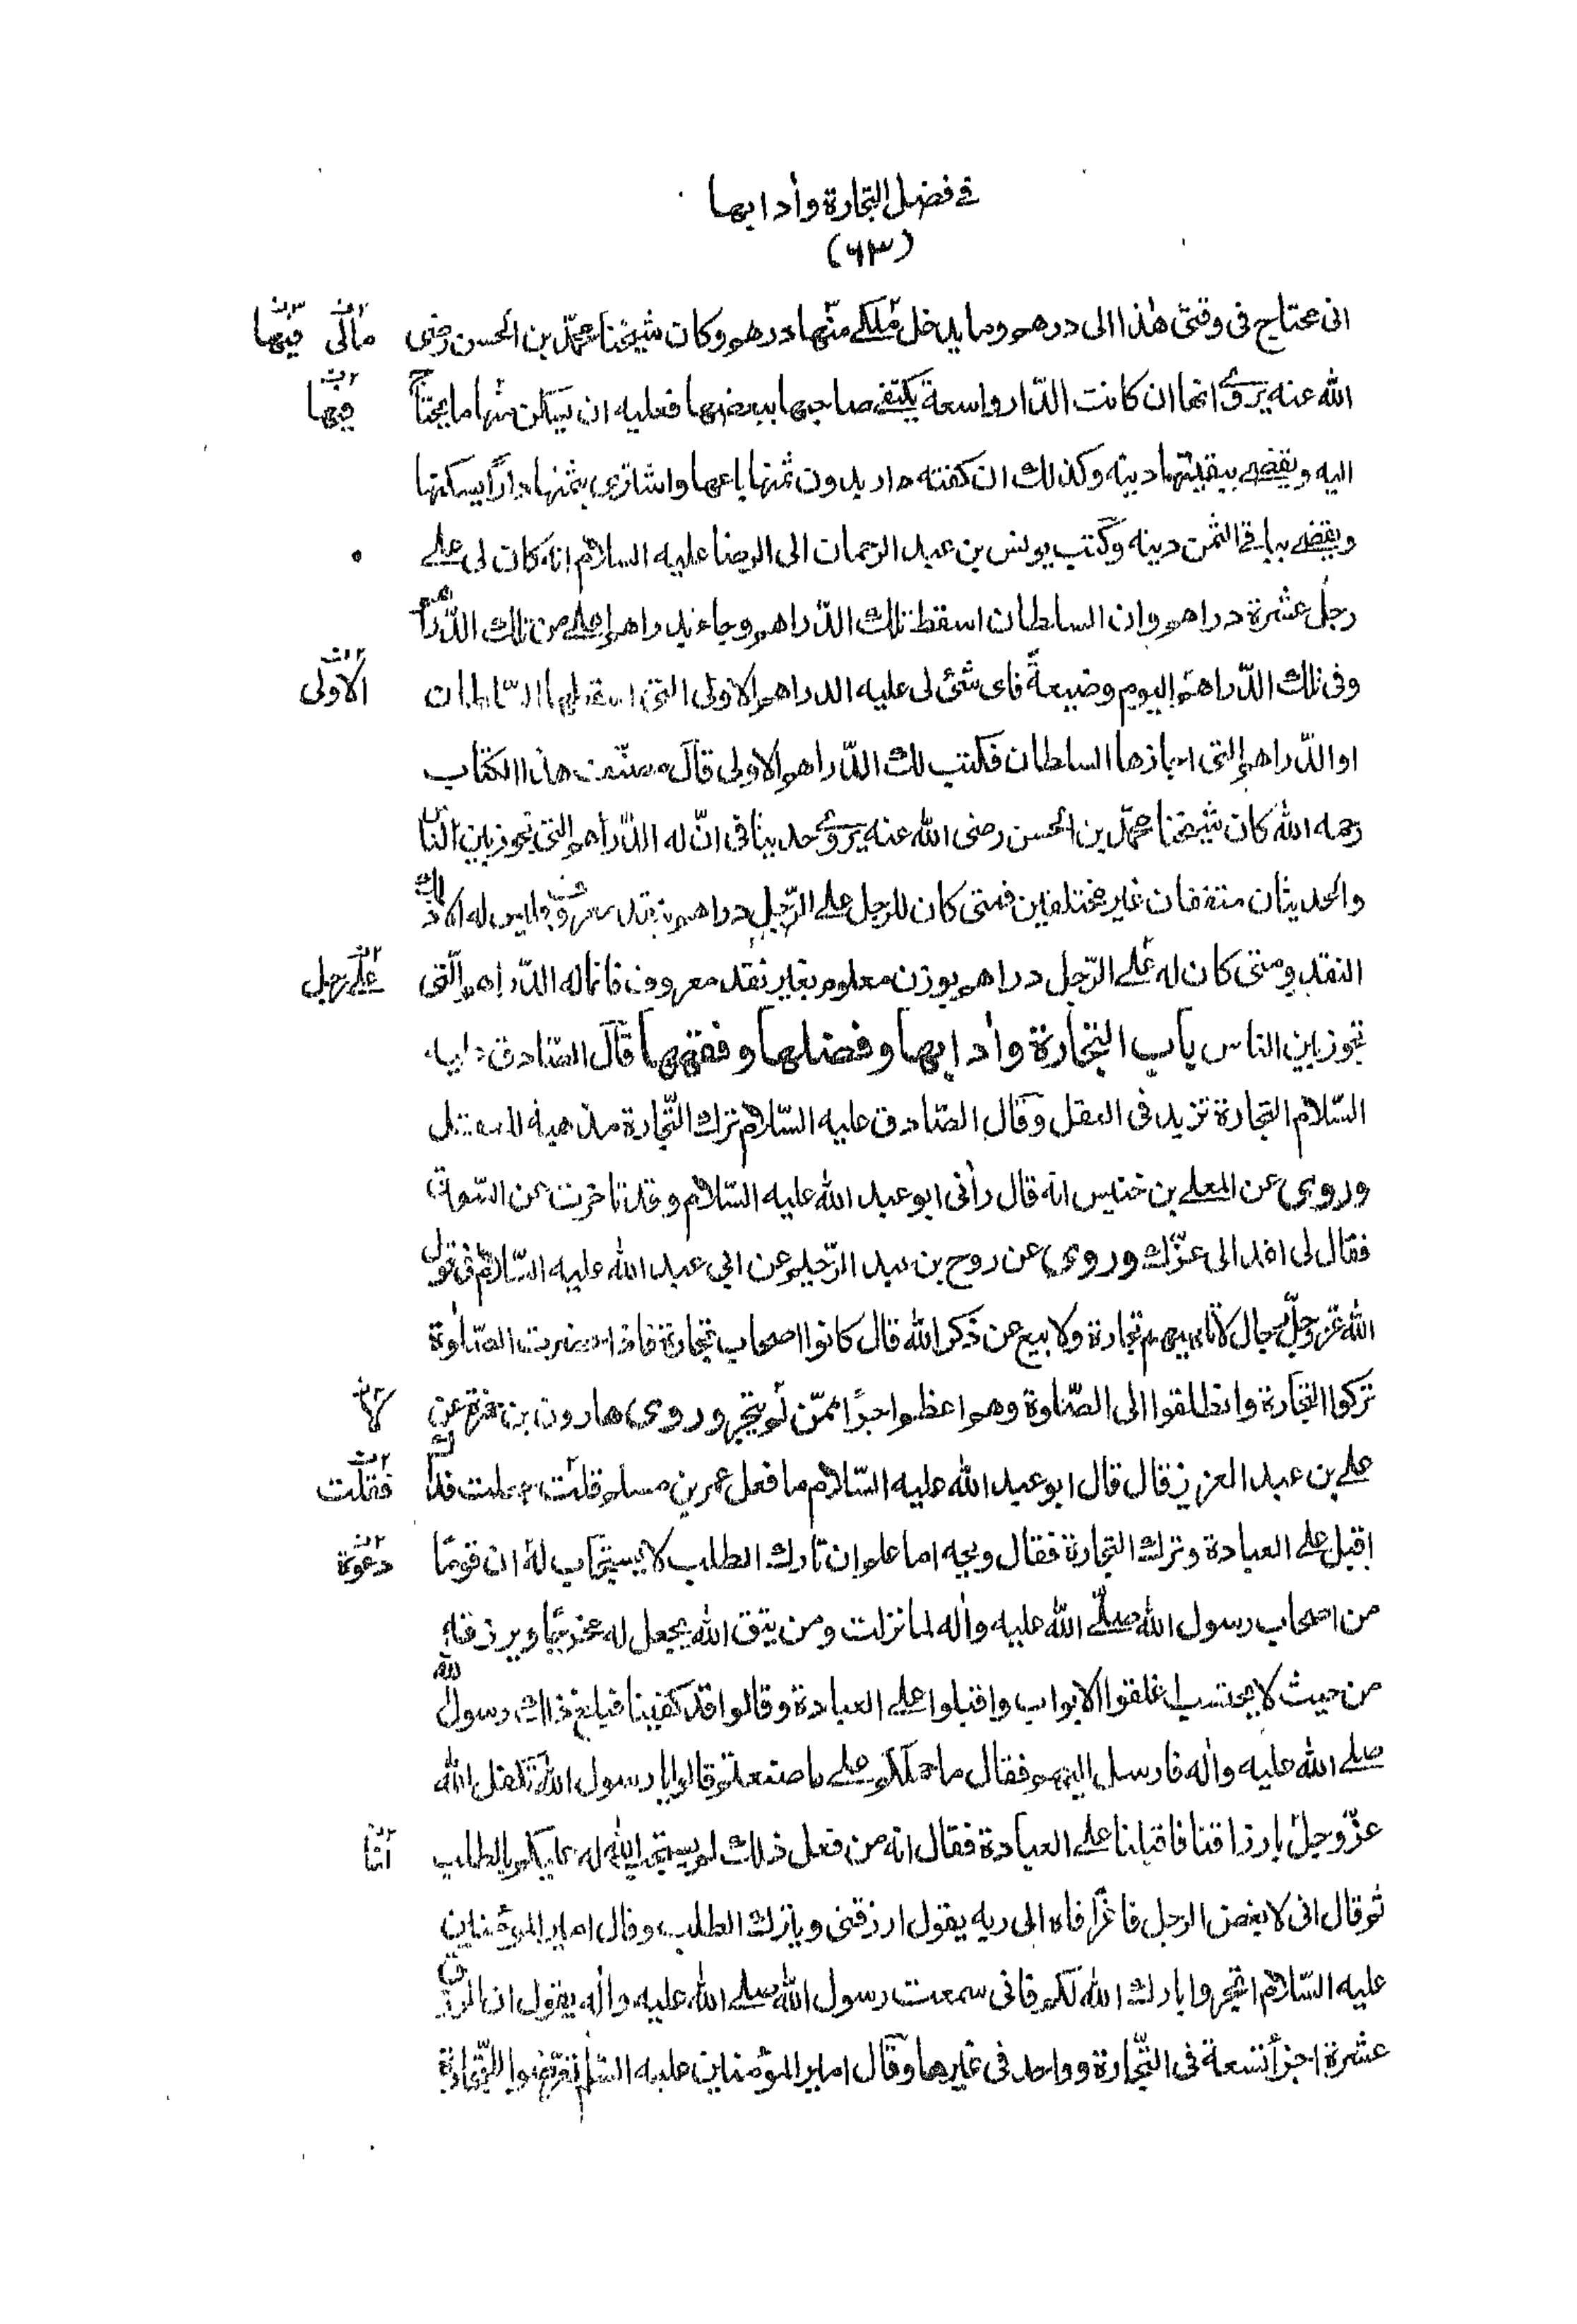 في فضل التجارة وأدابها
(٦٣)
انى محتاج فى وقتى هذا الى درهم وما يدخل ملكى منها درهم وكان شيخنا محمد بن الحسن رضى
مالى فيها
الله عنه يروى انها ان كانت الدّار واسعة يكتفى صاحبها ببعضها فعليه ان يسكن منها ما يحتاج
فيها
اليه ويقضى ببقيتها دينه وكذلك ان كفته دار بدون ثمنها باعها واشترى بثمنها داراً يسكنها
ويقضى بباقى الثمن دينه وكتب يونس بن عبد الرحمان الى الرضا عليه السلام انه كان لى على
رجل عشرة دراهم وان السلطان اسقط تلك الدّراهم وجاء بدراهم اعلى من تلك الدّراهم
وفى تلك الدّراهم اليوم وضيعةً فاى شئ لى عليه الدراهم الاولى التى اسقطها السّلطان
الاولى
او الدّراهم التى اجازها السلطان فكتب لك الدّراهم الاولى قال مصنّف هذا الكتاب
رحمه الله كان شيخنا محمّد بن الحسن رضى الله عنه يروى حديثا فى انّ له الدّراهم التى تجوز بين الناس
والحديثان متفقان غير مختلفين فمتى كان للرجل على الرّجل دراهم بنقد معروف فليس له الا ذلك
النقد ومتى كان له على الرّجل دراهم بوزن معلوم بغير نقد معروف فانما له الدّراهم الّتى
على رجل
تجوز بين الناس باب التجارة وأدابها وفضلها وفقهها قال الصّادق عليه
السّلام التجارة تزيد فى العقل وقال الصّادق عليه السّلام ترك التّجارة مذهبة للعقل
وروى عن المعلى بن خنيس انه قال رأنى ابو عبد الله عليه السّلام وقد تاخرت عن السّوق
فقال لى اغد الى عزّك وروى عن روح بن عبد الرّحيم عن ابي عبد الله عليه السّلام فى قول
الله عزّ وجلّ رجال لا تلهيهم تجارة ولا بيع عن ذكر الله قال كانوا اصحاب تجارة فاذا حضرت الصّلوة
تركوا التجارة وانطلقوا الى الصّلوة وهم اعظم اجرًا ممّن لم يتجر وروى هارون بن حمزة عن
على بن عبد العزيز قال قال ابو عبد الله عليه السّلام ما فعل عمر بن مسلم قلت جعلت فداك
فقلت
اقبل على العبادة وترك التجارة فقال ويحه اما علم ان تارك الطلب لا يستجاب له ان قومًا
دعوة
من اصحاب رسول الله صلّى الله عليه واٰله لما نزلت ومن يتق الله يجعل له مخرجًا ويرزقه
من حيث لا يحتسب اغلقوا الابواب واقبلوا على العبادة وقالوا قد كفينا فبلغ ذلك رسول الله
صلى الله عليه واٰله فارسل اليهم فقال ما حملكم على ما صنعتم قالوا يا رسول الله تكفل الله
عزّ وجلّ بارزاقنا فاقبلنا على العبادة فقال انه من فعل ذلك لم يستجب الله له عليكم بالطلب
لنا
ثم قال انى لا بغض الرجل فاغرًا فاه الى ربه يقول ارزقنى ويترك الطلب وقال امير المؤمنين
عليه السّلام اتجروا بارك الله لكم فانى سمعت رسول الله صلى الله عليه واٰله يقول ان الرزق
عشرة اجزأ تسعة فى التّجارة وواحد فى غيرها وقال امير المؤمنين عليه السّلام تعرّضوا للتّجارة